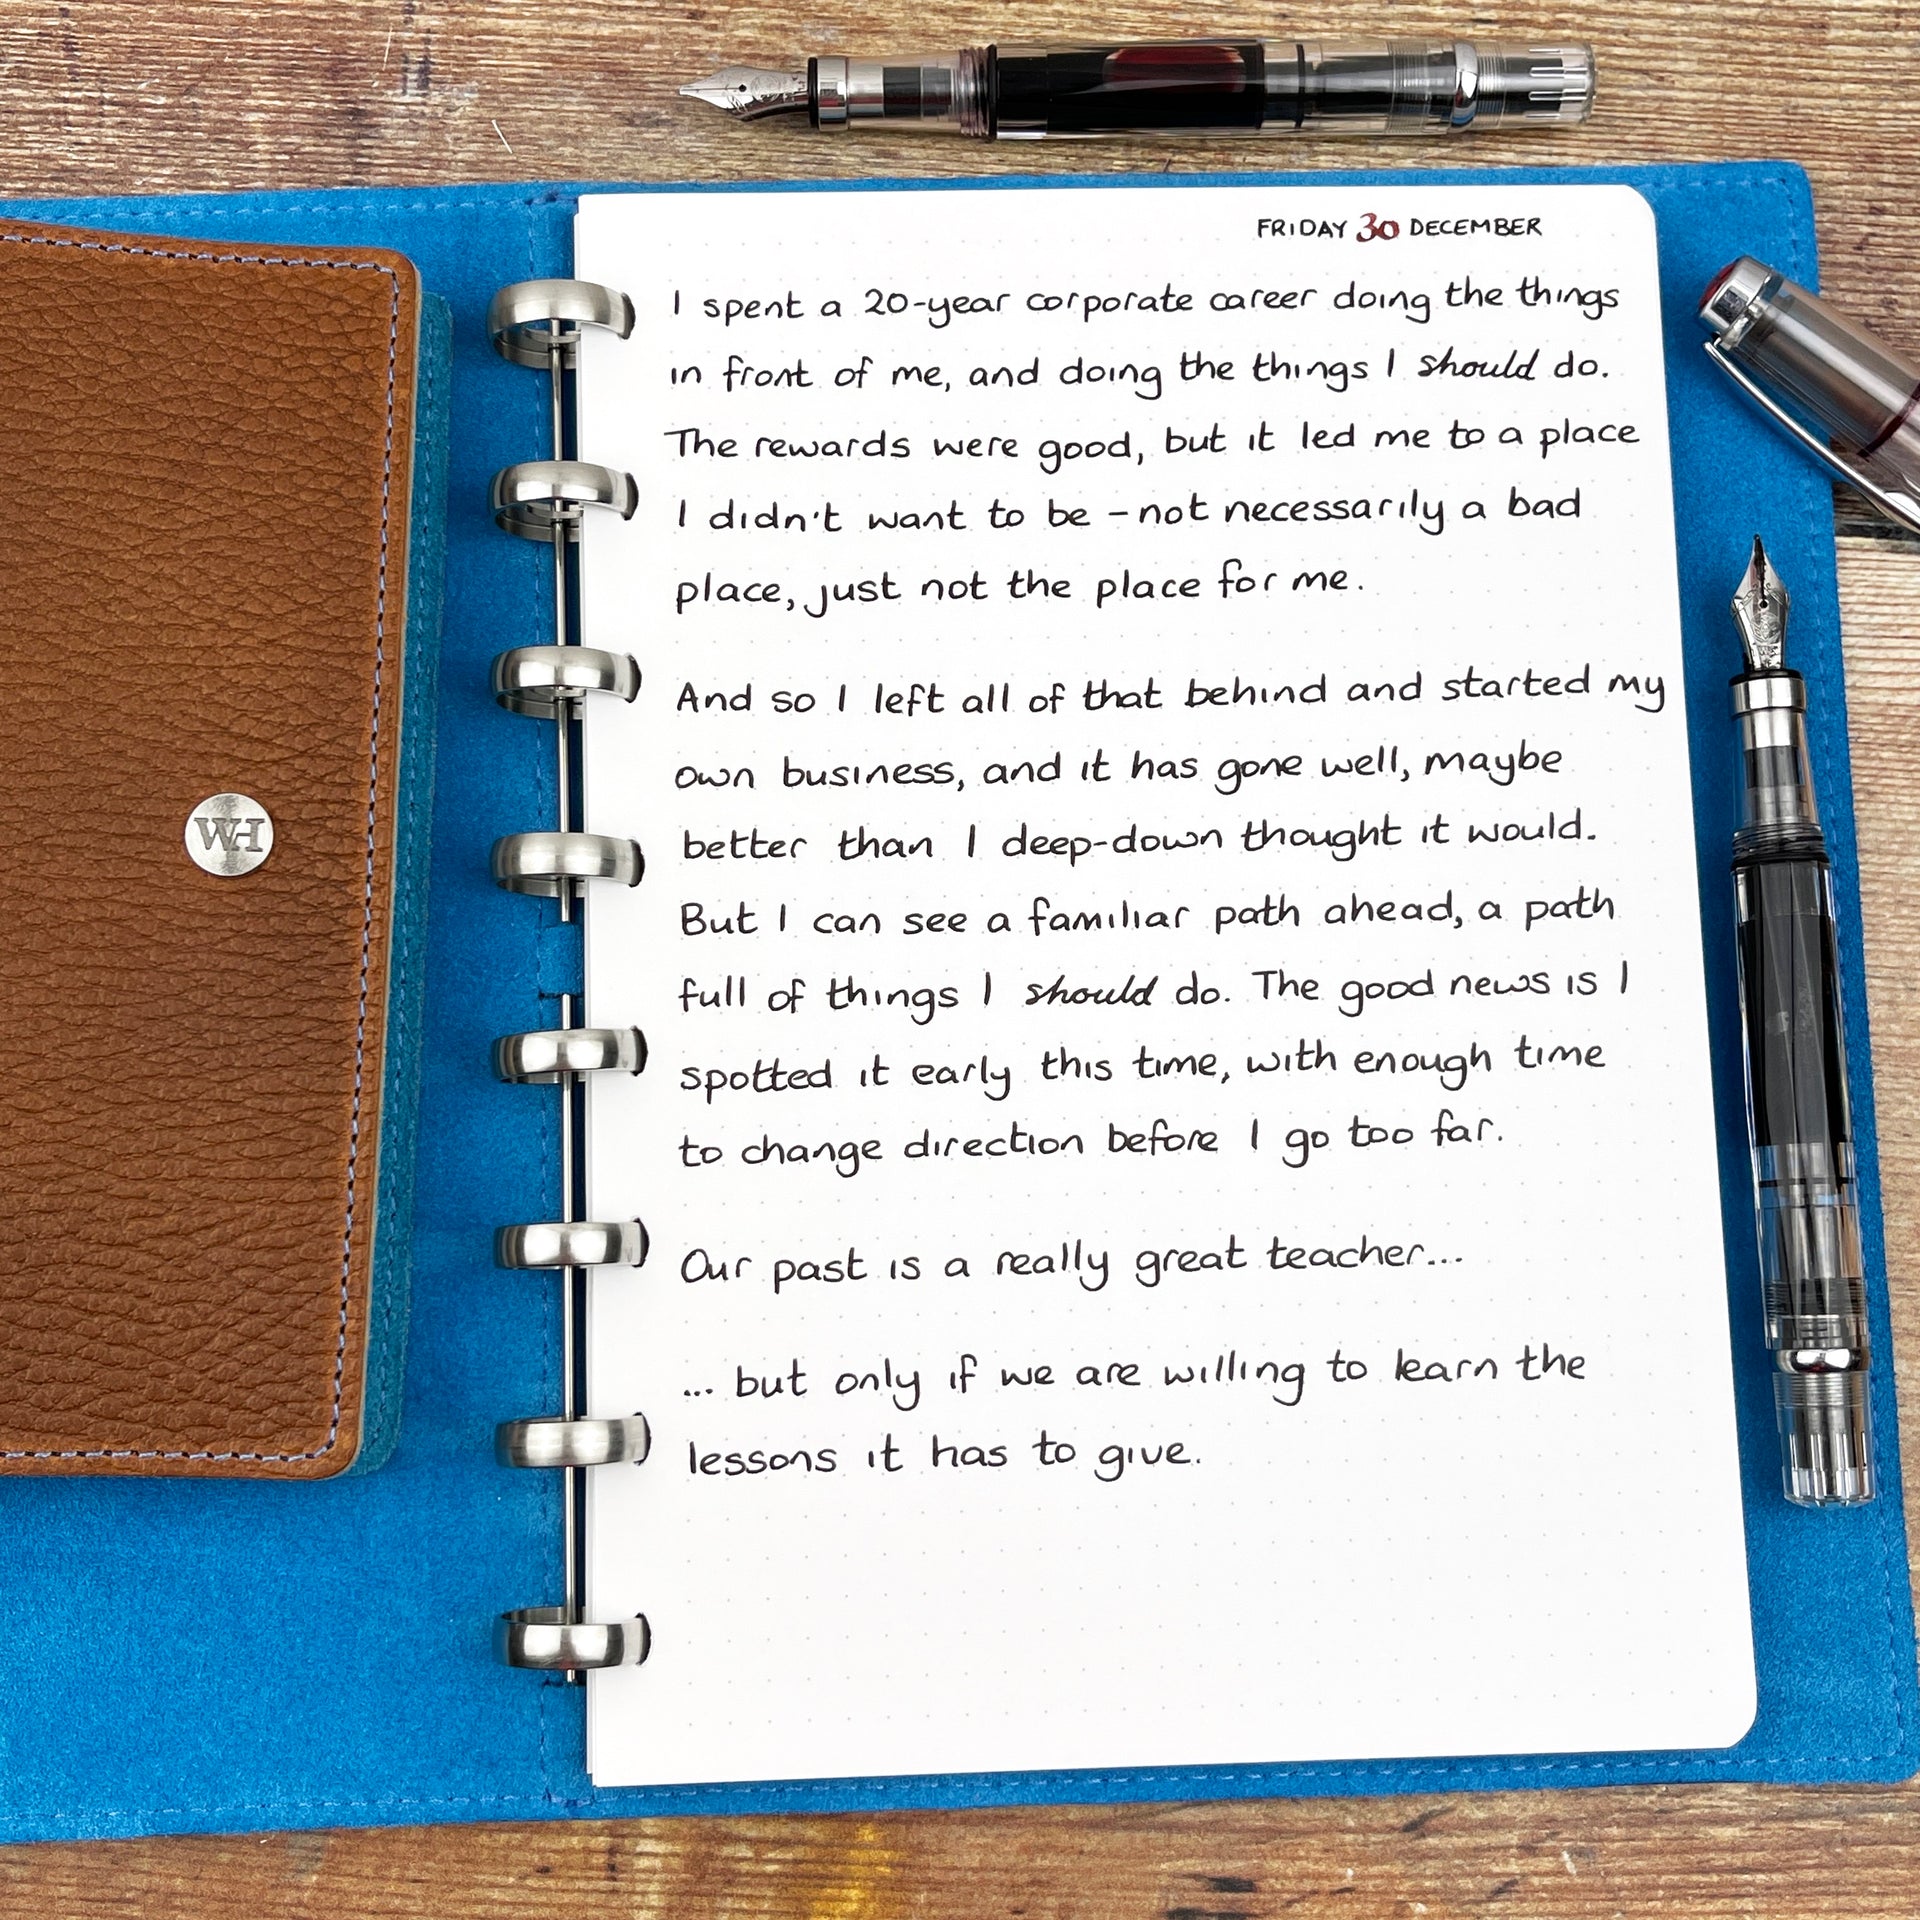 FRIDAY 30 DECEMBER
I spent a 20-year corporate career doing the things
in front of me, and doing the things I should do.
The rewards were good, but it led me to a place
I didn't want to be - not necessarily a bad
place, just not the place for me.
And so I left all of that behind and started my
own business, and it has gone well, maybe
better than I deep-down thought it would.
But I can see a familiar path ahead, a path
full of things I should do. The good news is I
spotted it early this time, with enough time
to change direction before I go too far.
Our past is a really great teacher...
... but only if we are willing to learn the
lessons it has to give.
WH